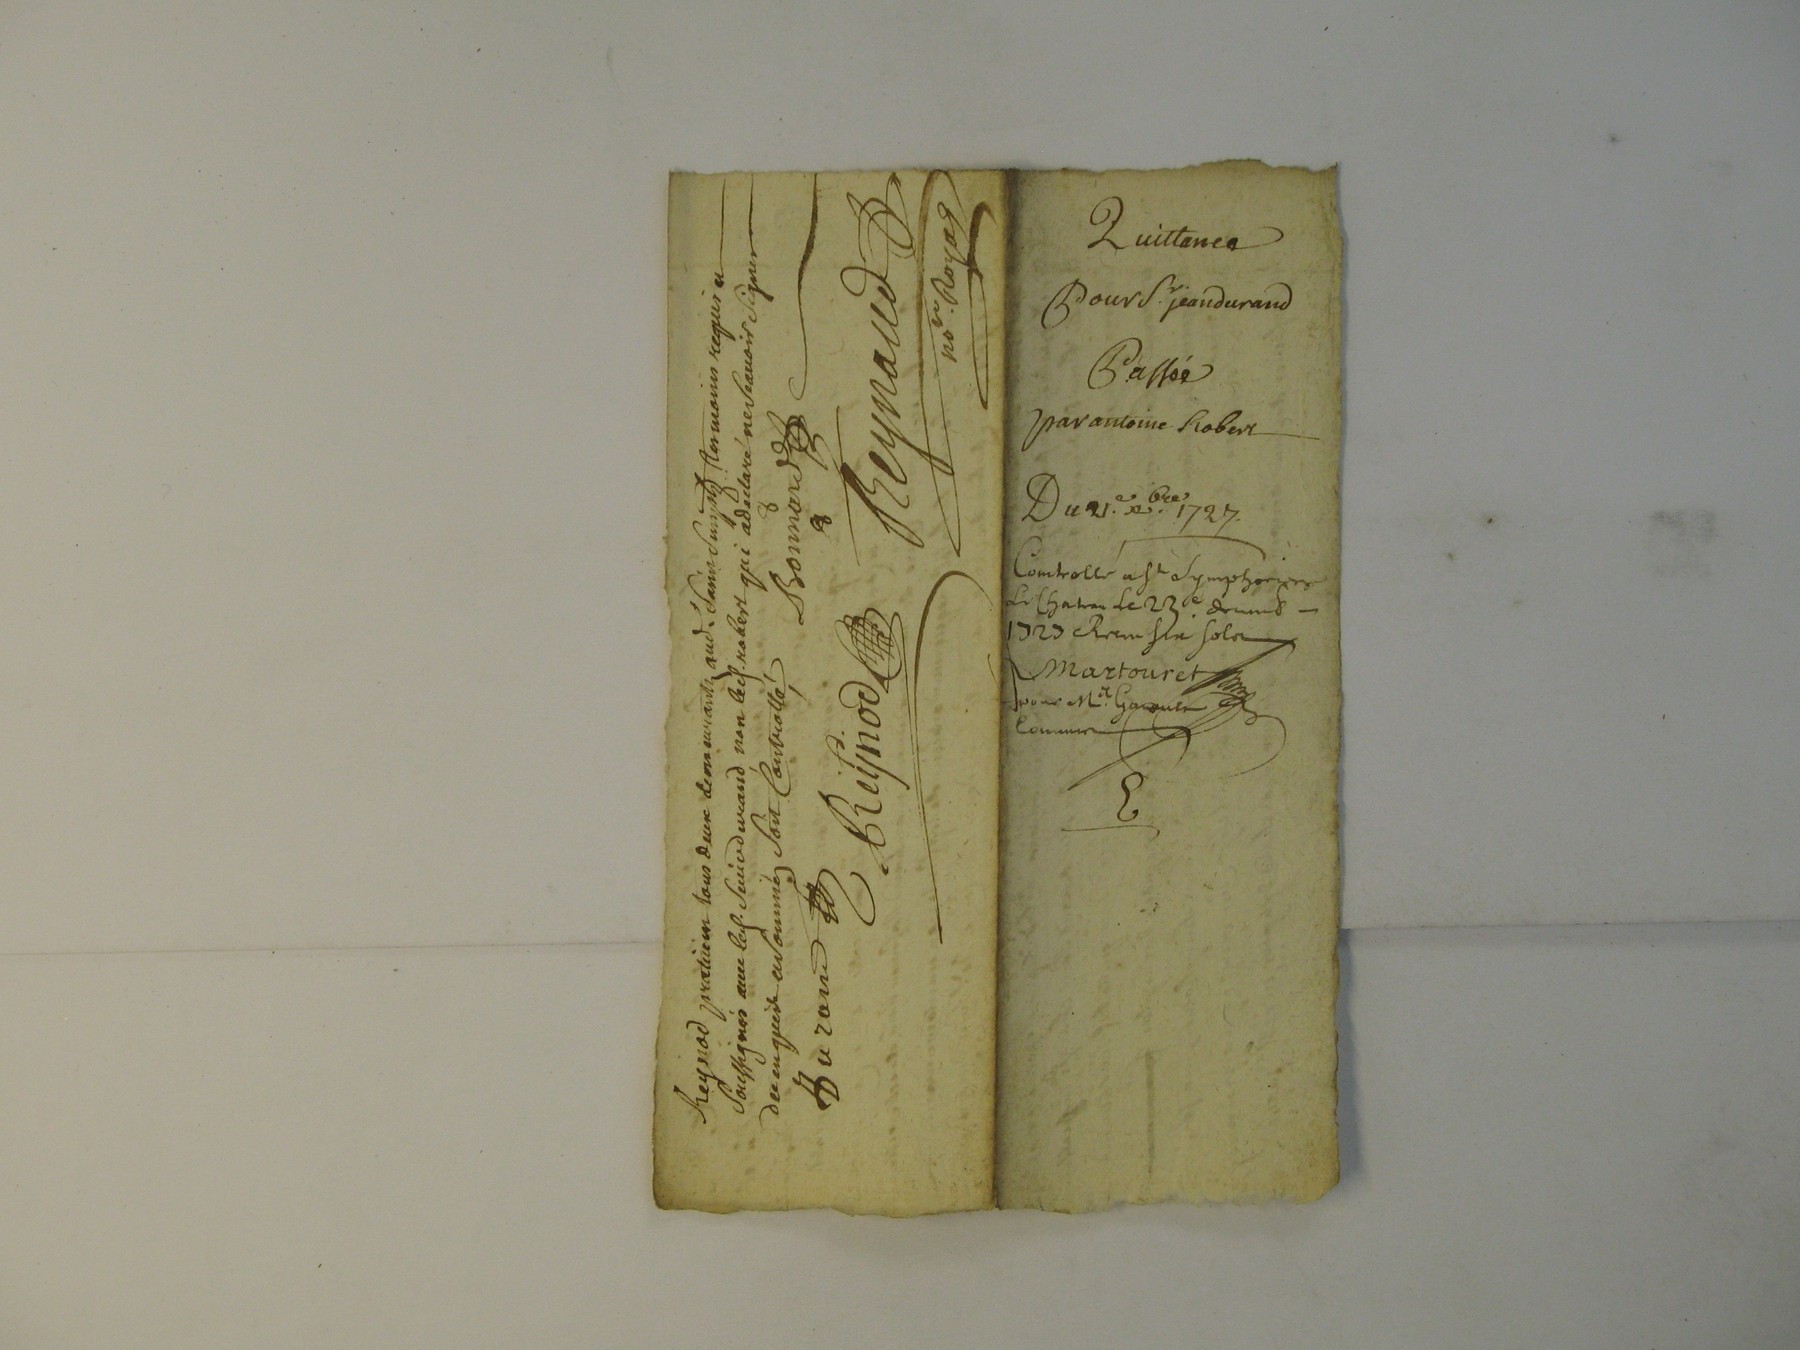 Reynod praticien tous deux demeurants aud. Saint Simph. temoins requis et
soussignés avec led. Sieur durand non led. robert qui a declaré ne scavoir signer
de ce enquis et sommé, Soit Controllé
Durand Bonnard
Reijnod Reynaud
no.re Royag
Quittance
Pour Sr. jean durand
Passée
par antoine Robert
Du 21.e xbre. 1727.
Controllé a St Symphorien
Le Chateau Le 23e decemb
1727 Receu six sols
Martouret
pour Mr.
Commis